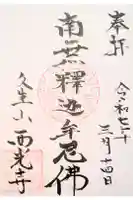 奉拝
令和七年
三月十四日
南無釋迦牟尼佛
久米山
西光寺